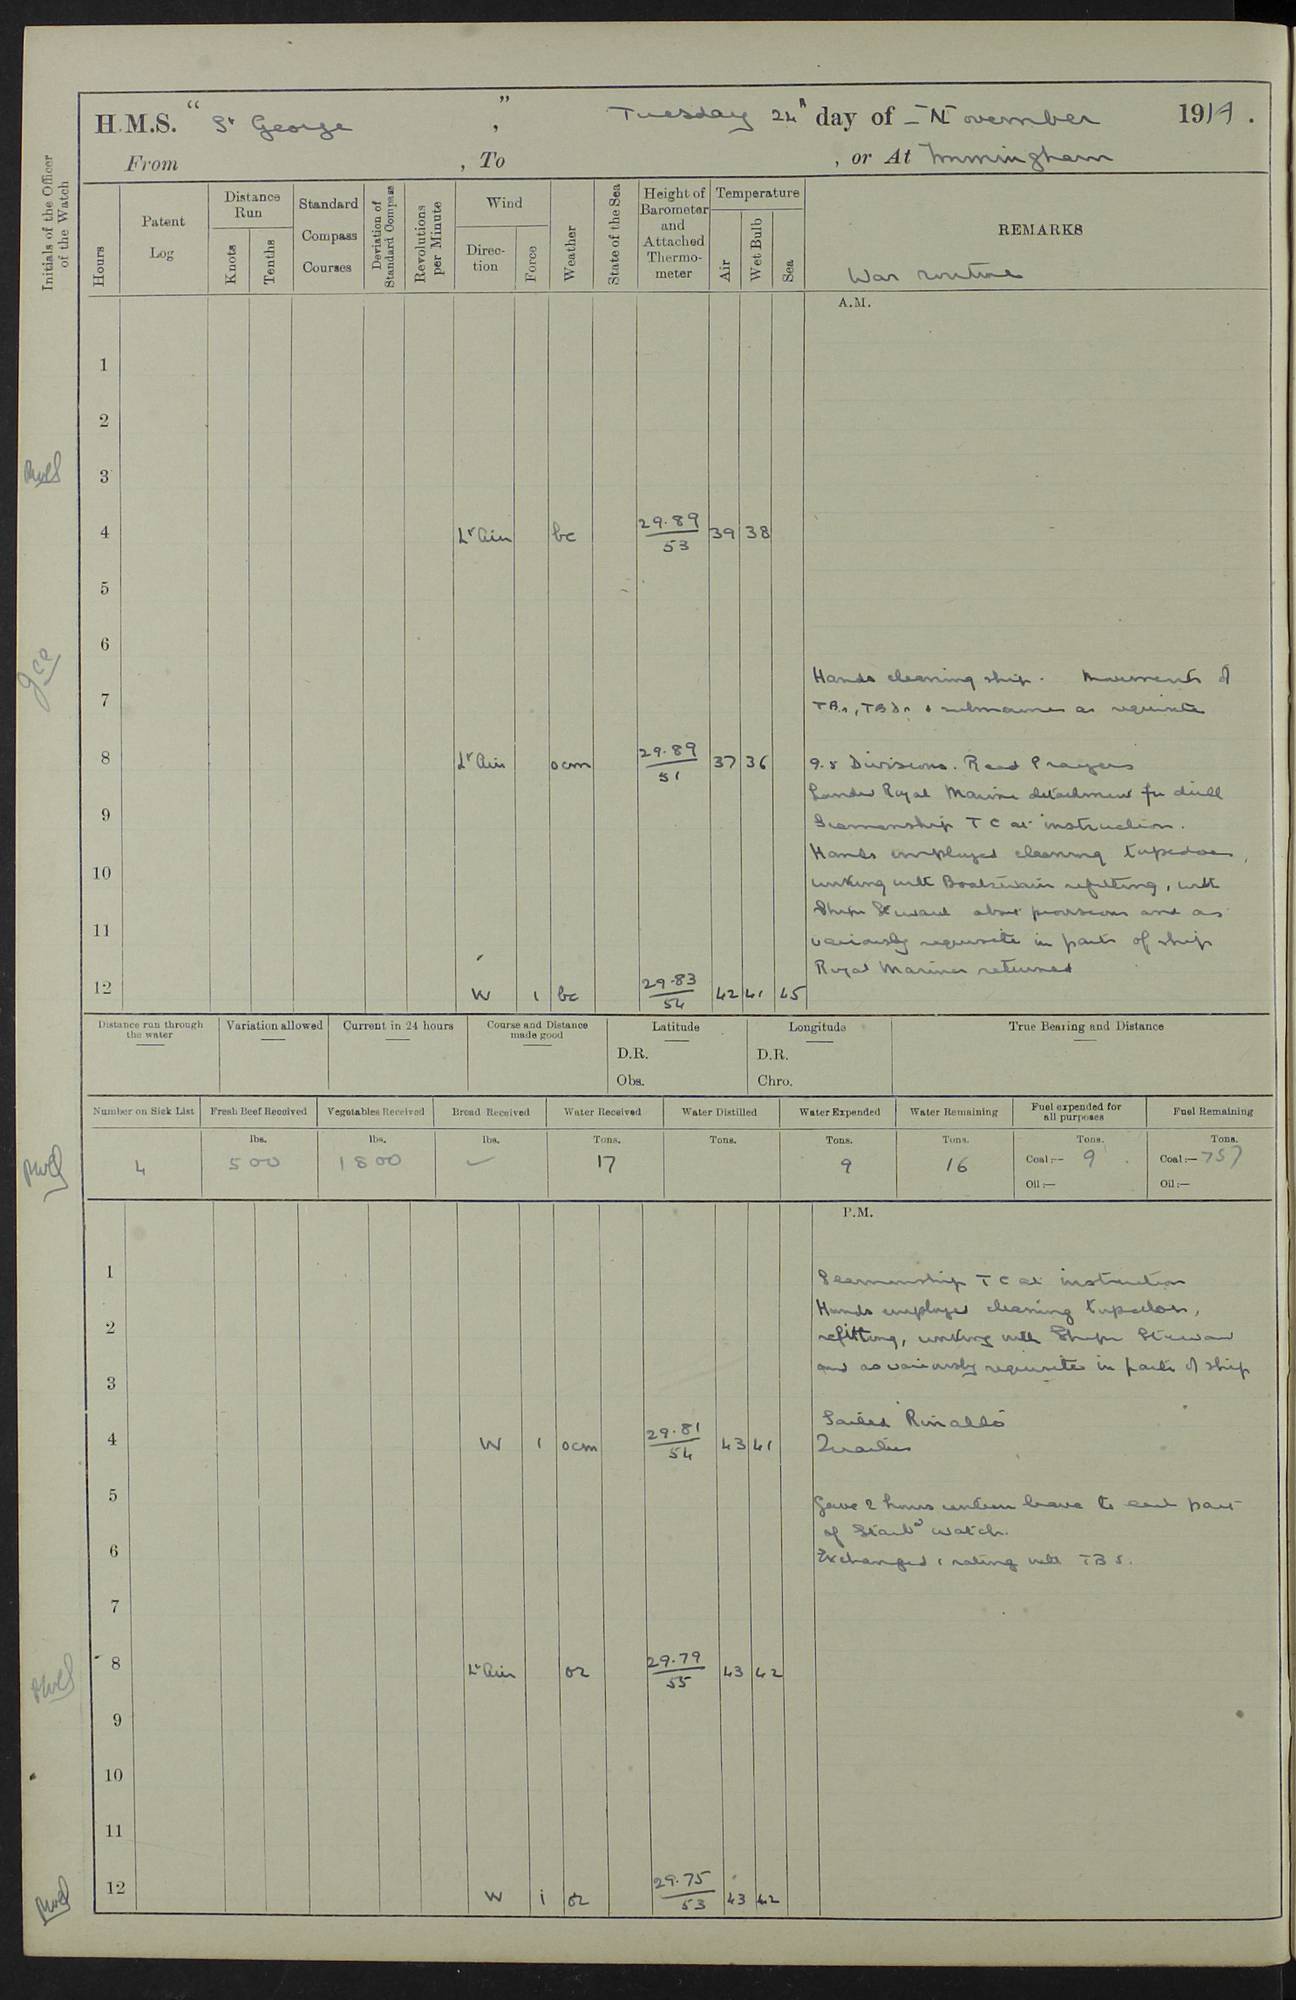 H.M.S. "St George", Tuesday 24th day of November 1914.
From , To , or At Immingham
Initials of the Officer of the Watch
Hours
Patent Log
Distance Run
Knots
Tenths
Standard Compass Courses
Deviation of Standard Compass
Revolutions per Minute
Wind
Direc-tion
Force
Weather
State of the Sea
Height of Barometer and Attached Thermo-meter
Temperature
Air
Wet Bulb
Sea
REMARKS
War routine
A.M.
1
2
3
4 Lt Air bc 29.89 53 39 38
5
6
Hands cleaning ship. Movements of
7
TBs, TBDs & submarines as requisite
8 Lt Air ocm 29.89 51 37 36 9.5 Divisions. Read Prayers
Landed Royal Marine detachment for drill
9
Seamanship T C at instruction.
Hands employed cleaning torpedoes,
10
working with Boatswain refitting, with
Ships Steward about provisions and as
11
variously requisite in parts of ship
Royal Marines returned
12 W 1 bc 29.83 54 42 41 45
Distance run through the water
Variation allowed
Current in 24 hours
Course and Distance made good
Latitude
D.R.
Obs.
Longitude
D.R.
Chro.
True Bearing and Distance
Number on Sick List
Fresh Beef Received
Vegetables Received
Bread Received
Water Received
Water Distilled
Water Expended
Water Remaining
Fuel expended for all purposes
Fuel Remaining
lbs. lbs. lbs. Tons. Tons. Tons. Tons. Tons. Tons.
4 500 1800 17 9 16 Coal:— 9 Coal:— 757
Oil:— Oil:—
P.M.
1 Seamanship T C at instruction
Hands employed cleaning torpedoes,
2 refitting, working with Ships Steward
and as variously requisite in parts of ship
3
Sailed Rinaldo
4 W 1 ocm 29.81 54 43 41 Quarters
5 Gave 2 hours canteen leave to each part
of Starbd watch.
6 Exchanged 1 rating with TB 5.
7
8 Lt Air oz 29.79 55 43 42
9
10
11
12 W 1 oz 29.75 53 43 42